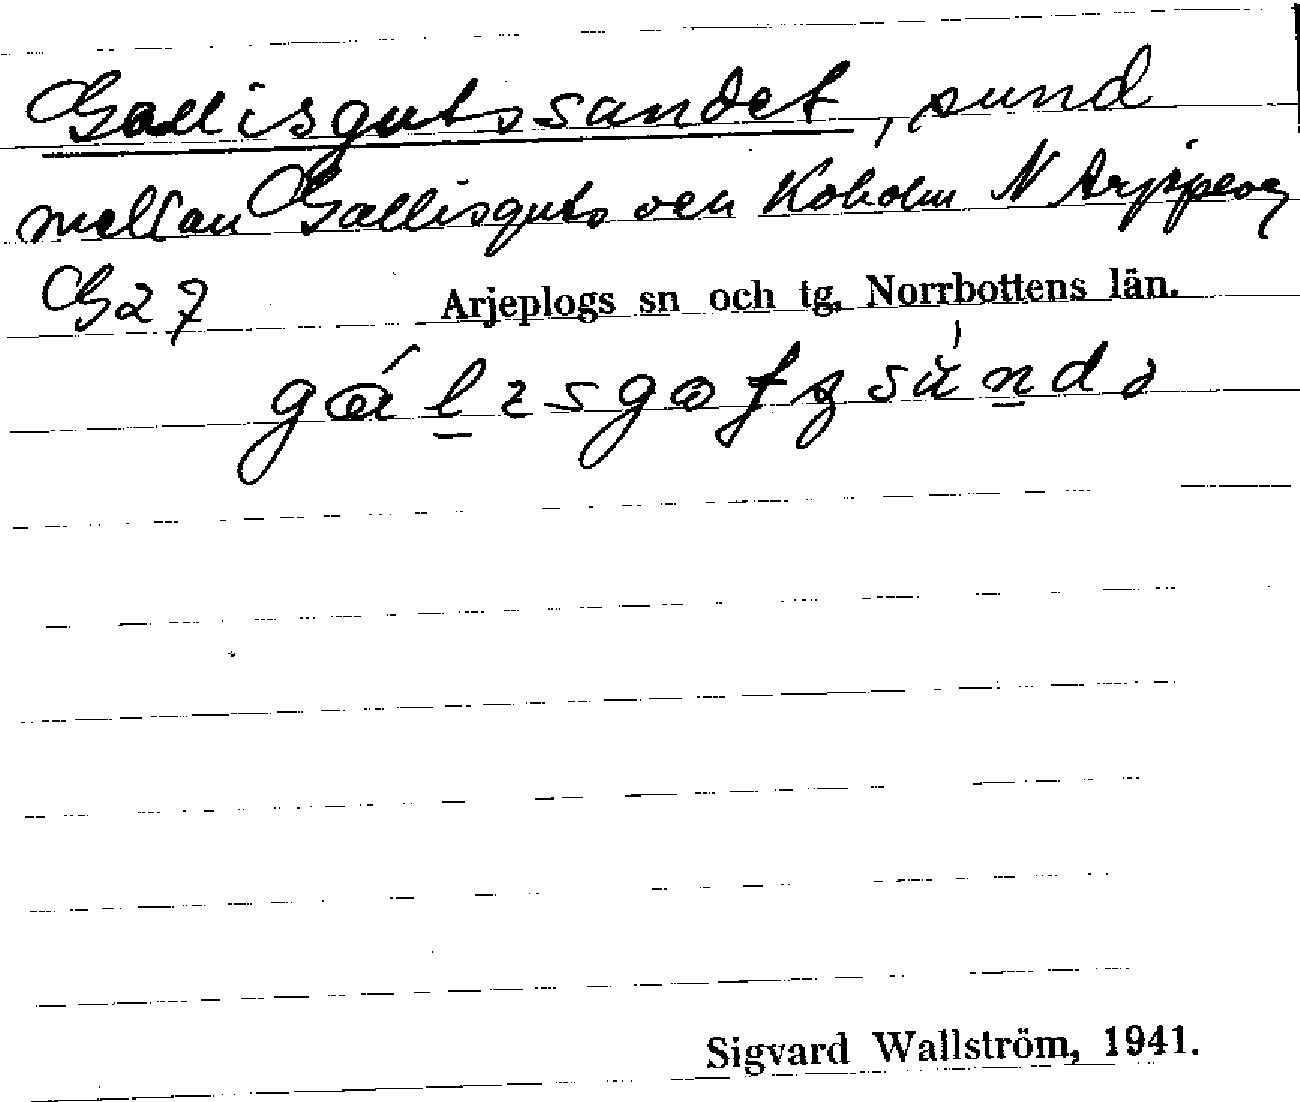 Gallisgutssandet, sund
mellan Gallisguts och Koholm N Arjeplog
G27
Arjeplogs sn och tg, Norrbottens län.
Sigvard Wallström, 1941.